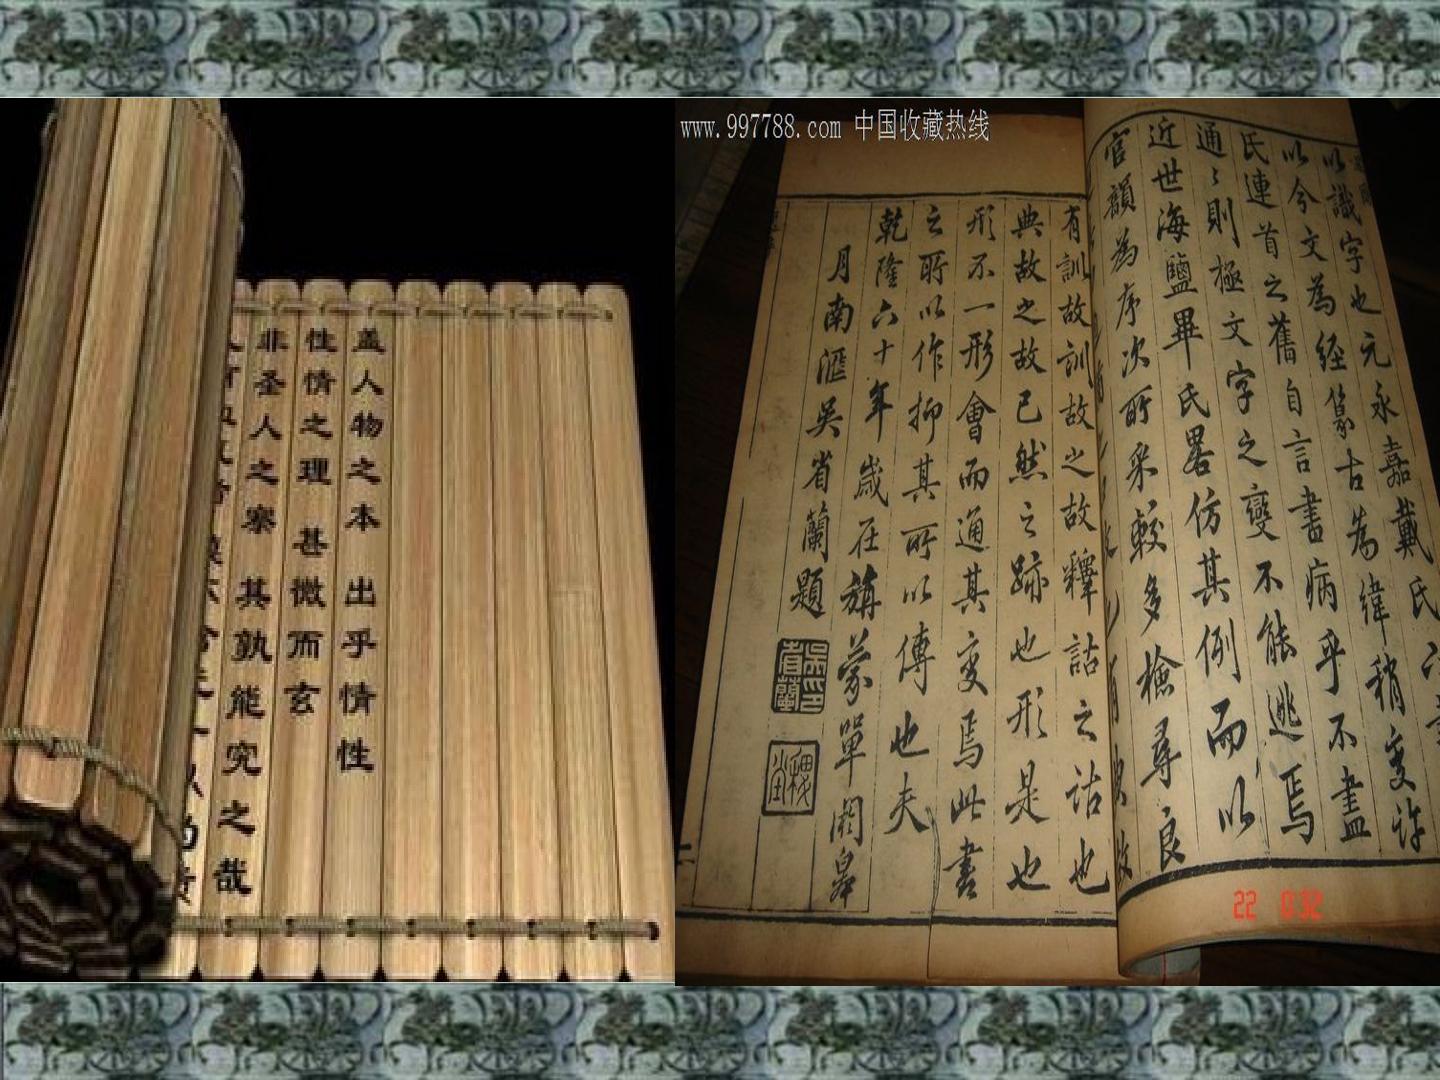 www.997788.com 中国收藏热线
盖人物之本 出乎情性
性情之理 甚微而玄
非圣人之察 其孰能究之哉
以識字也元永嘉戴氏
以今文為經篆古為緯稍变許
氏連首之舊自言書病乎不盡
通〻則極文字之變不能逃焉
近世海鹽畢氏畧仿其例而以
官韻為序次所采較多檢尋良
有訓故訓故之故釋詁之詁也
典故之故已然之跡也形是也
形不一形會而通其变焉此書
之所以作抑其所以傳也夫
乾隆六十年歲在旃蒙單閼皋
月南滙吳省蘭題
吳省蘭印
稷堂
22 0:32